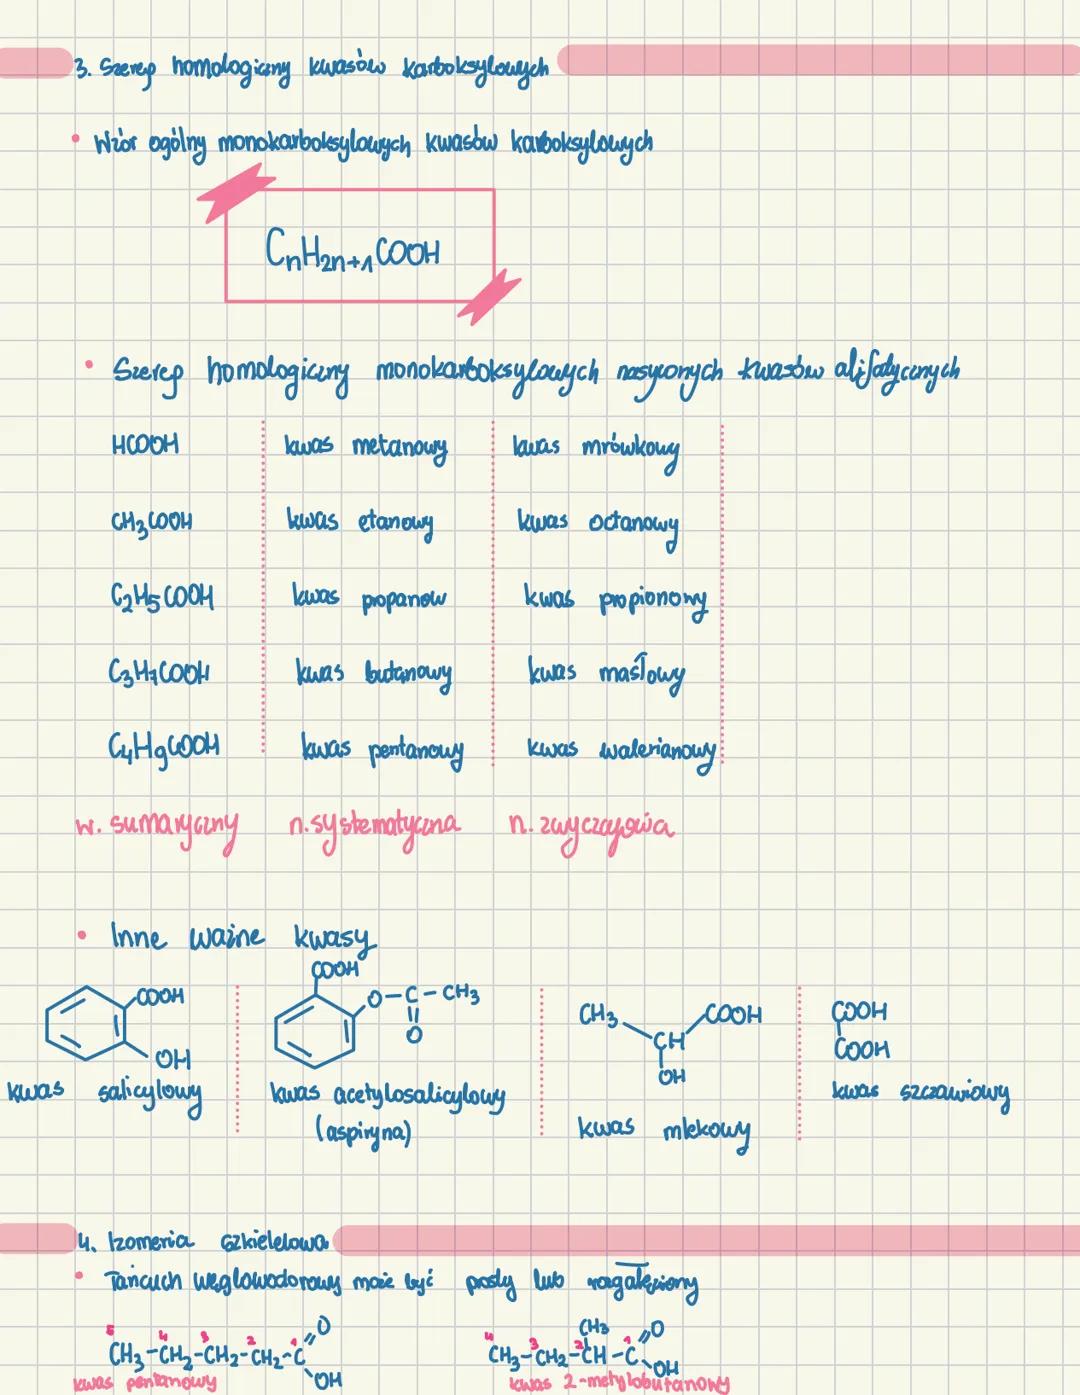 3. Szereg homologiczny kwasów karboksylowych
• Wzór ogólny monokarboksylowych kwasów karboksylowych
CnH2n+1COOH
• Szereg homologiczny monokarboksylowych nasyconych kwasów alifatycznych
HCOOH kwas metanowy kwas mrówkowy
CH3COOH kwas etanowy kwas octanowy
C2H5COOH kwas propanow kwas propionowy
C3H7COOH kwas butanowy kwas masłowy
C4H9COOH kwas pentanowy kwas walerianowy
w. sumaryczny n.systematyczna n. zwyczajowa
• Inne ważne kwasy
COOH
OH
kwas salicylowy
COOH
O-C-CH3
O
kwas acetylosalicylowy
(aspiryna)
CH3 COOH
CH
OH
kwas mlekowy
COOH
COOH
kwas szczawiowy
4. Izomeria szkieletowa
• Łańcuch węglowodorowy może być prosty lub rozgałęziony
5 4 3 2 1 O
CH3-CH2-CH2-CH2-C
OH
kwas pentanowy
CH3
4 3 2 1 O
CH3-CH2-CH-C
OH
kwas 2-metylobutanowy